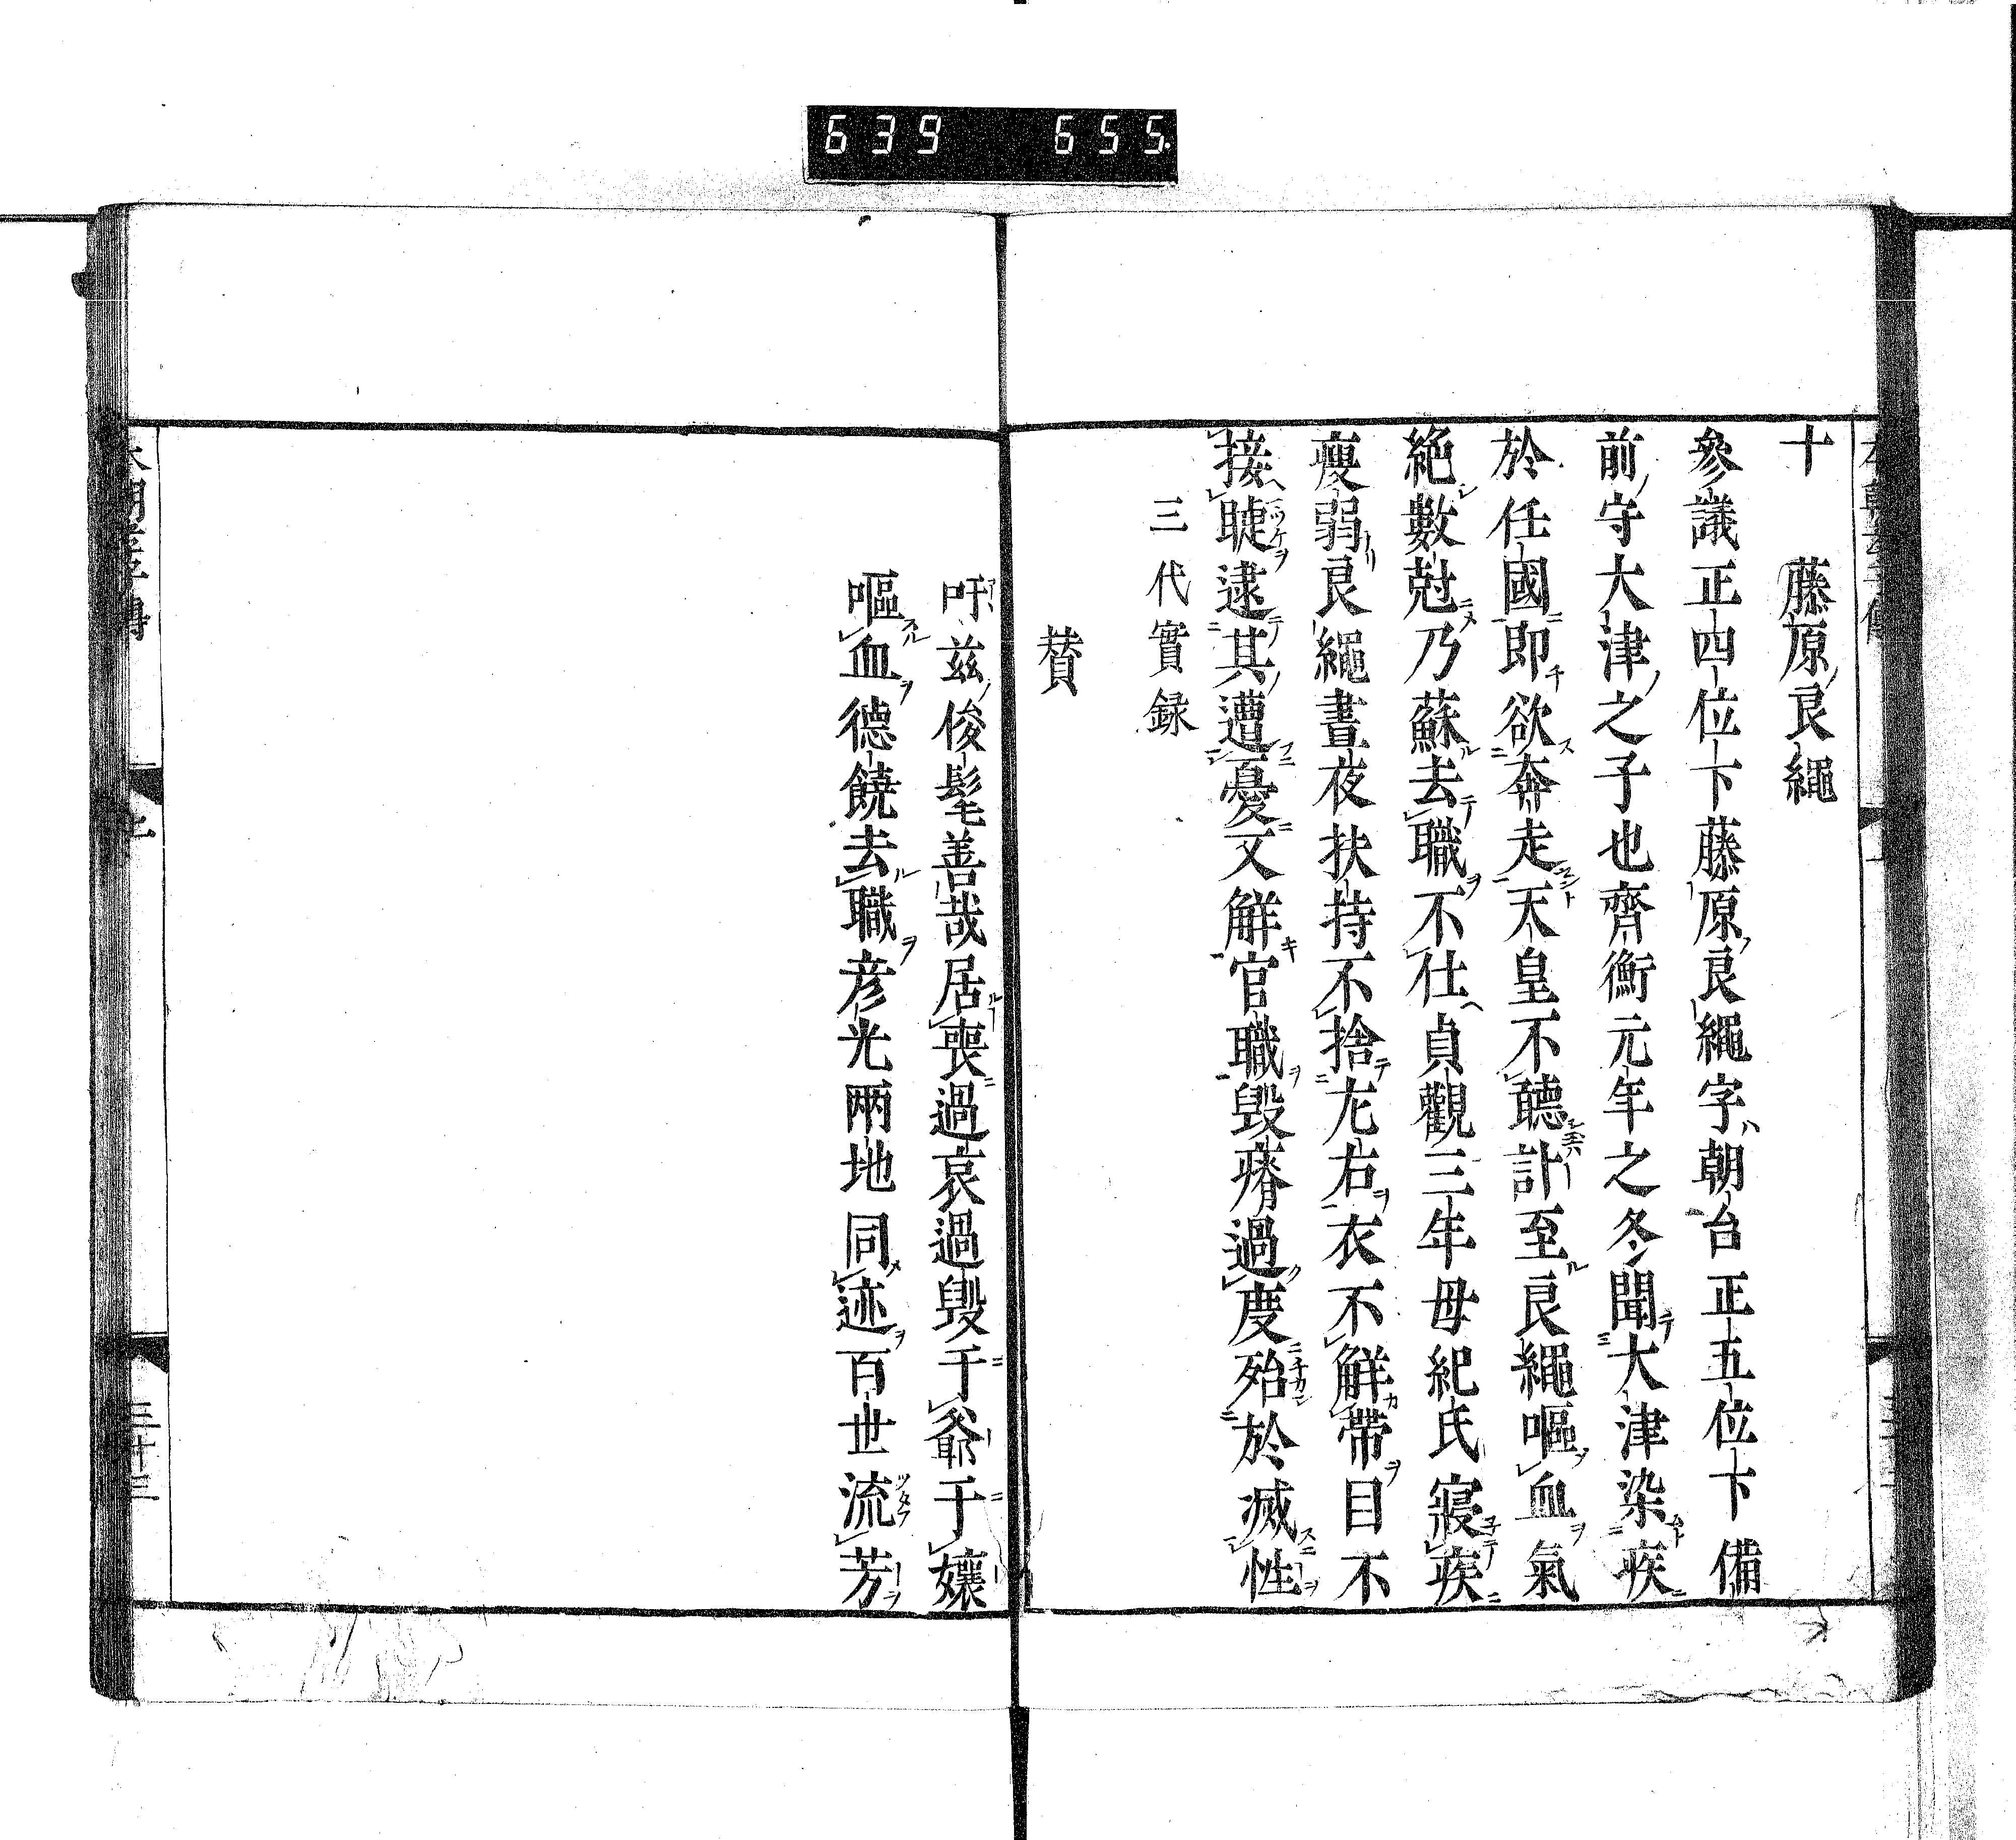 639 655.
十 藤原良繩
參議正四位下藤原良繩字朝台正五位下備
前守大津之子也齊衡元年之冬聞大津染疾
於任國即欲奔走天皇不聽訃至良繩嘔血氣
絶數尅乃蘇去職不仕貞觀三年母紀氏寢疾
瘦弱良繩晝夜扶持不捨左右衣不解帶目不
接睫逮其遭憂又解官職毀瘠過度殆於滅性
三代實録
賛
吁茲俊髦善哉居喪過哀過毀于爺于孃
嘔血德饒去職彦光兩地同迹百世流芳
本朝孝子傳 上 三十三